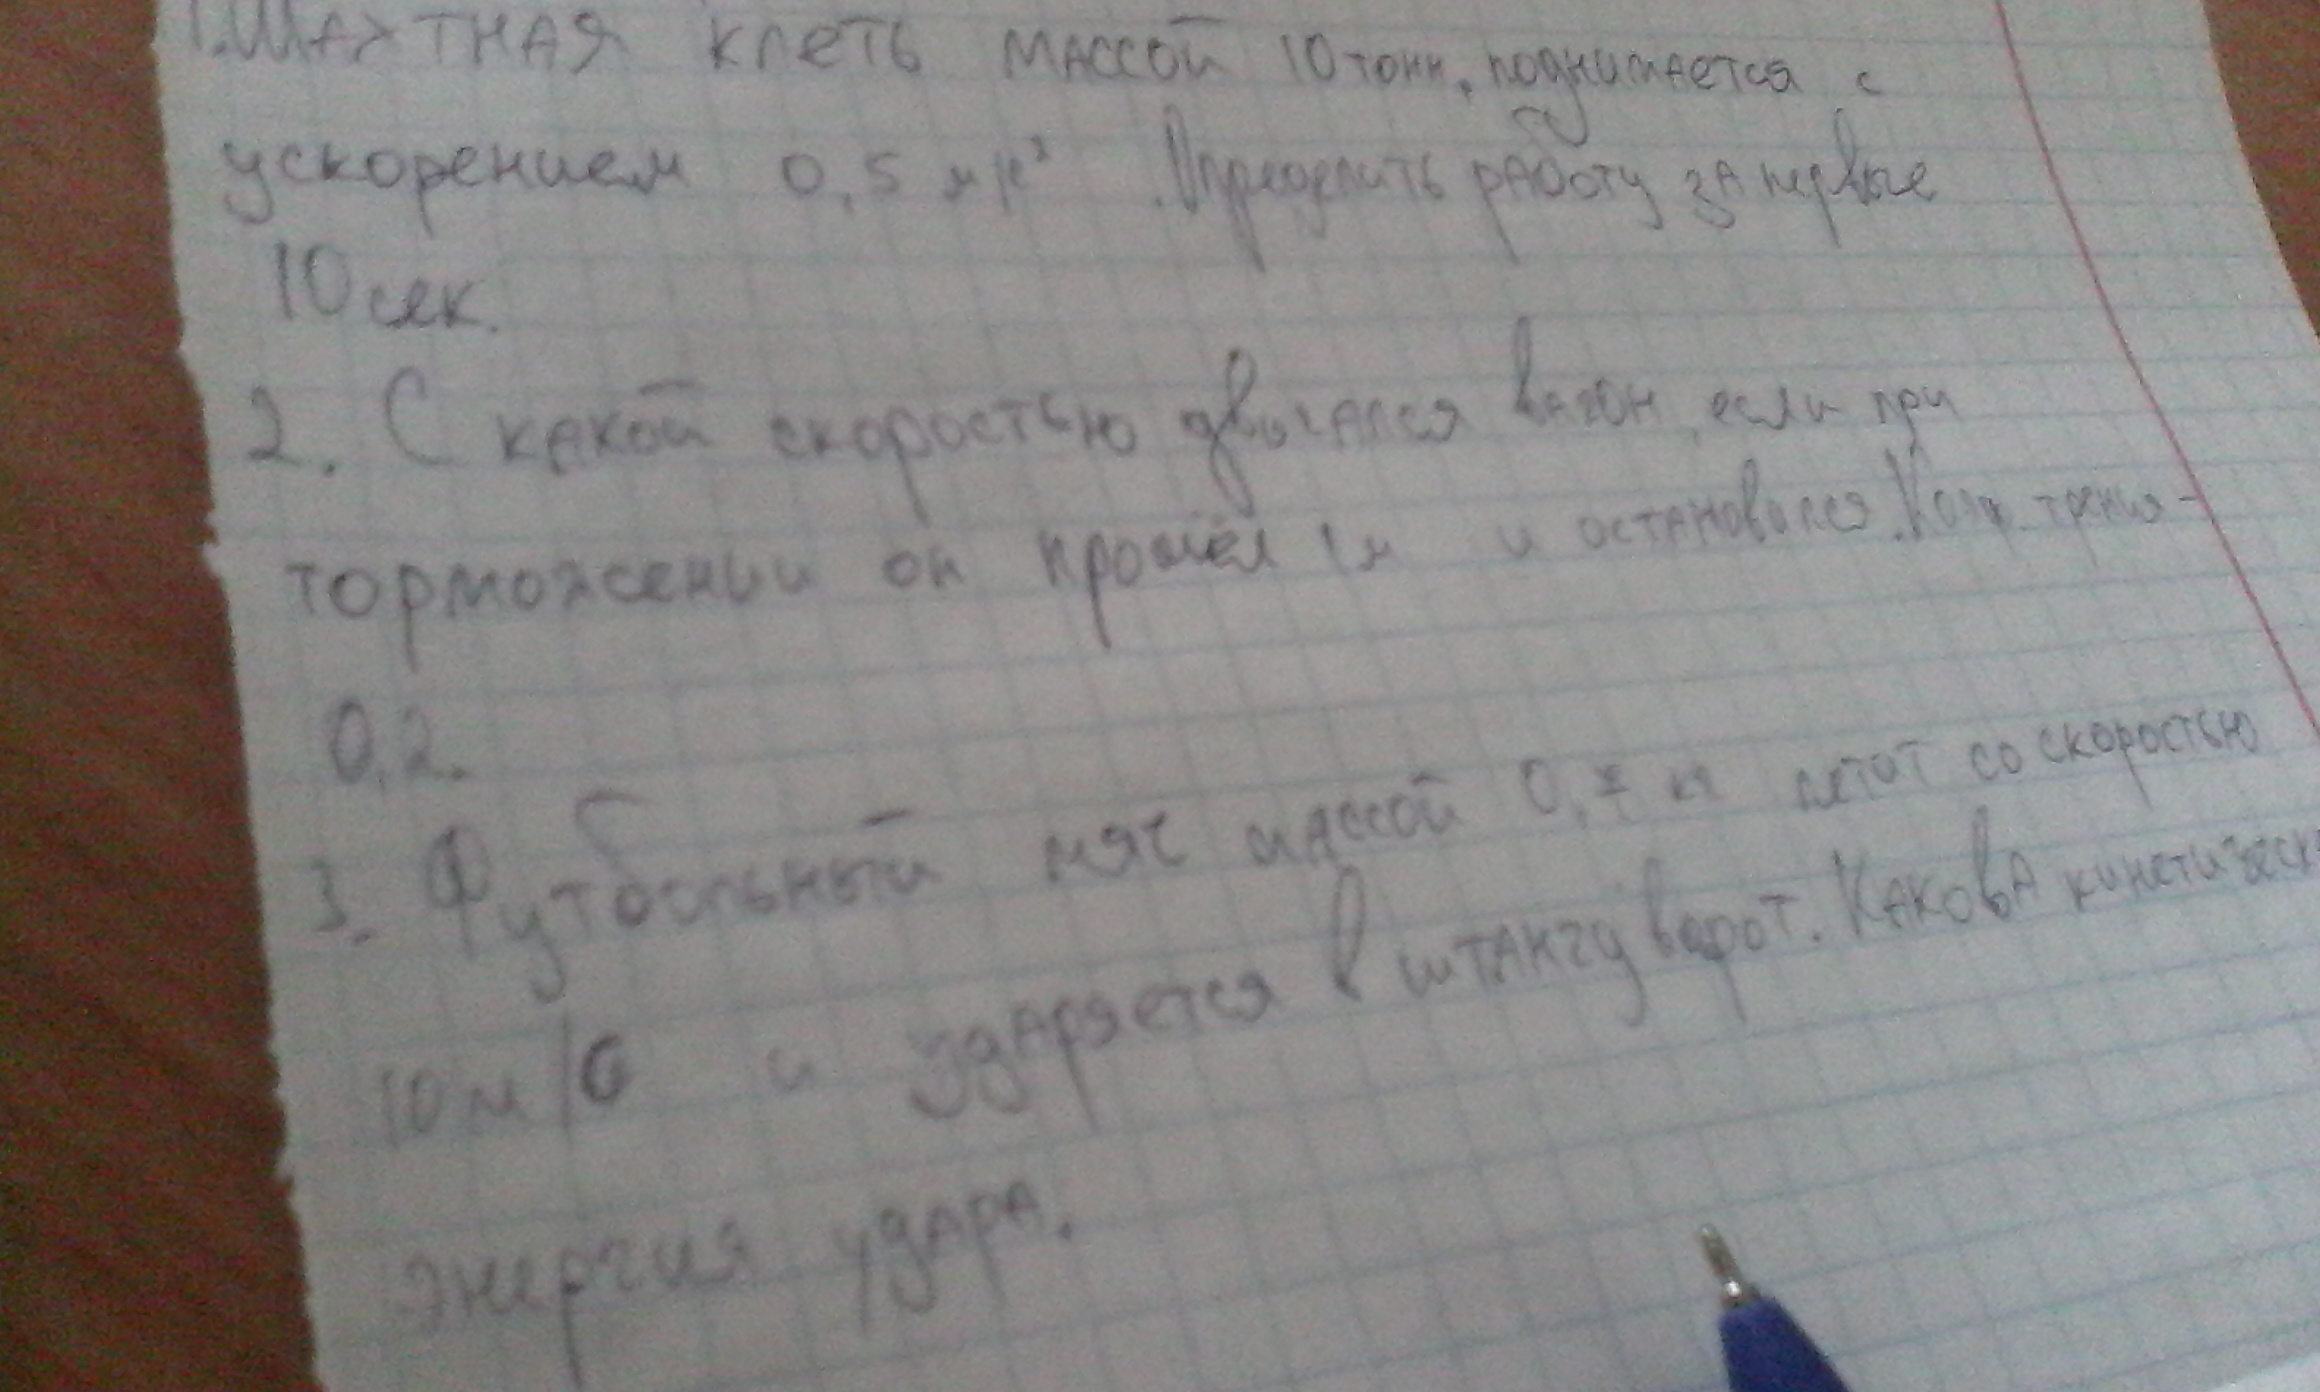 1. Шахтная клеть массой 10 тонн, поднимается с
ускорением 0,5 м/с². Определить работу за первые
10 сек.
2. С какой скоростью двигался вагон, если при
торможении он прошёл 1м и остановился. Коэф. трения -
0,2.
3. Футбольный мяч массой 0,7 кг летит со скоростью
10 м/с и ударяется в штангу ворот. Какова кинетическ
энергия удара.